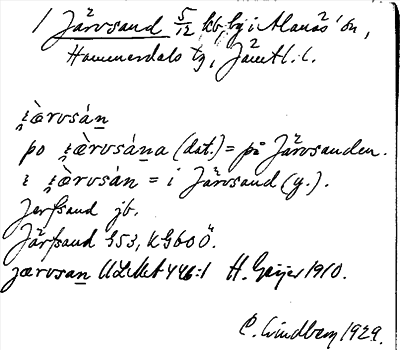 1 Järvsand 5/12 kb, by i Alanäs' sn,
Hammerdals tg, Jämtl. l.
i̯æ̀rvsáṉ
po i̯æ̀rvsáṉa (dat.) = på Järvsanden.
i i̯æ̀rvsáṉ = i Järvsand (y.).
Jerfsand jb.
Järfsand G53, KG60Ö.
jærvsaṉ ULMA 446:1 H. Geijer 1910.
C. Lindberg 1929.